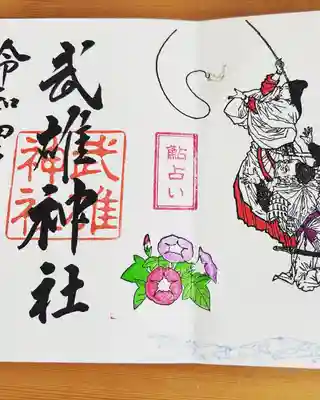 鮎占い
武雄神社
武雄
神社
令和四